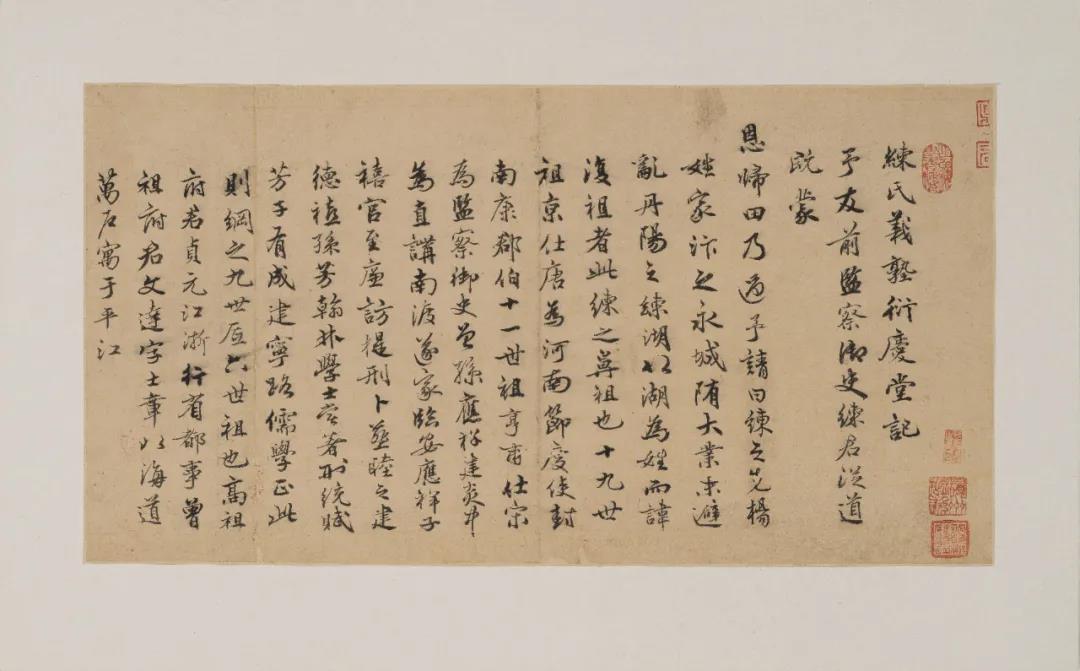 練氏義塾衍慶堂記
予友前監察御史練君從道
既蒙
恩歸田乃過予請曰練之先楊
姓家汴之永城隋大業末避
亂丹陽之練湖以湖為姓而諱
復祖者此練之鼻祖也十九世
祖京仕唐為河南節度使封
南康郡伯十一世祖亨甫仕宋
為監察御史曾孫應祥建炎中
為直講南渡遂家臨安應祥子
禧官至廉訪提刑卜葬睦之建
德禧孫芳翰林學士嘗著刑統賦
芳子有成建寧路儒學正此
則綱之九世至六世祖也高祖
府君貞元江浙行省都事曾
祖府君文達字士章以海道
萬石寓于平江